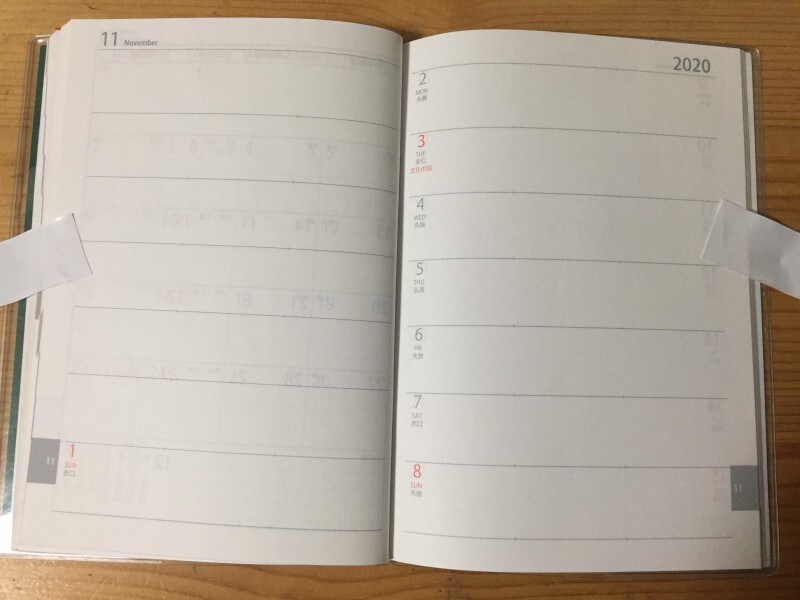 11 November
1
SUN
赤口
11
2020
2
MON
先勝
3
TUE
友引
文化の日
4
WED
先負
5
THU
仏滅
6
FRI
大安
7
SAT
赤口
8
SUN
先勝
11